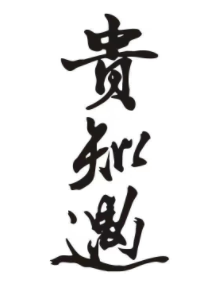 貴知遇